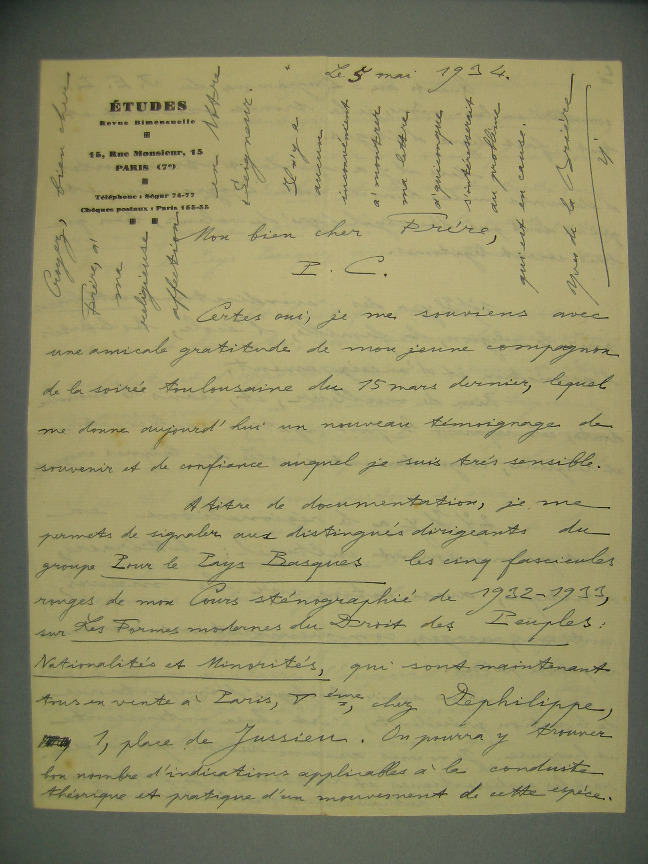 Le 5 mai 1934.
ÉTUDES
Revue Bimensuelle
15, Rue Monsieur, 15
PARIS (7e)
Téléphone : Ségur 74-77
Chèques postaux : Paris 155-55
Mon bien cher Frère,
P. C.
Certes oui, je me souviens avec
une amicale gratitude de mon jeune compagnon
de la soirée toulousaine du 15 mars dernier, lequel
me donne aujourd'hui un nouveau témoignage de
souvenir et de confiance auquel je suis très sensible.
A titre de documentation, je me
permets de signaler aux distingués dirigeants du
groupe Pour le Pays Basques les cinq fascicules
rouges de mon Cours sténographié de 1932-1933,
sur Les Formes modernes du Droit des Peuples :
Nationalités et Minorités, qui sont maintenant
tous en vente à Paris, V ème, chez Dephilippe,
1, place de Jussieu. On pourra y trouver
bon nombre d'indications applicables à la conduite
théorique et pratique d'un mouvement de cette espèce.
Croyez, bien cher
Frère, à
ma
religieuse
affection
en Notre
Seigneur.
Il n'y a
aucun
inconvénient
à montrer
ma lettre
à quiconque
s'intéresserait
au problème
qui est en cause.
Yves de la Brière
sj